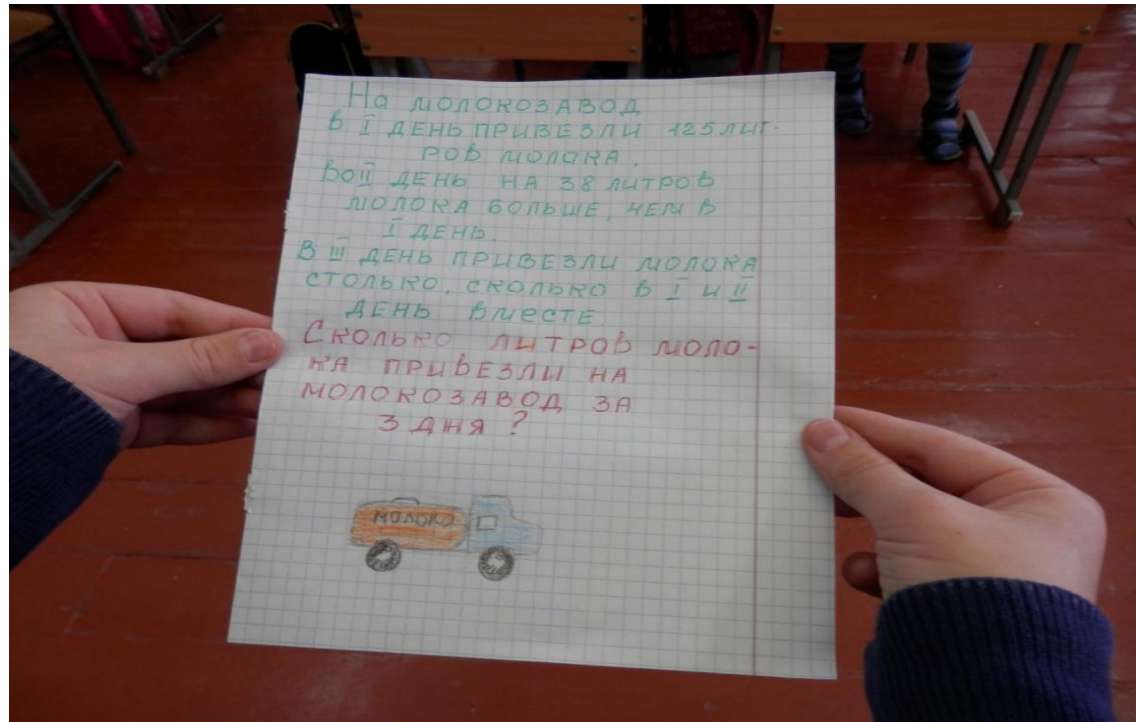 На молокозавод
в I день привезли 125 лит-
ров молока.
Во II день на 38 литров
молока больше, чем в
I день.
В III день привезли молока
столько, сколько в I и II
день вместе.
Сколько литров моло-
ка привезли на
молокозавод за
3 дня?
молоко